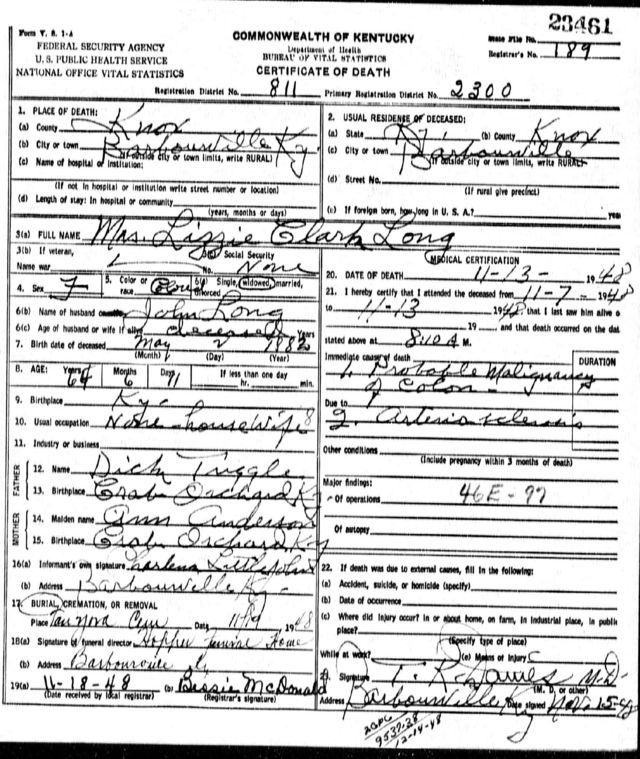 23461
Form V. S. 1-A
FEDERAL SECURITY AGENCY
U. S. PUBLIC HEALTH SERVICE
NATIONAL OFFICE VITAL STATISTICS
COMMONWEALTH OF KENTUCKY
Department of Health
BUREAU OF VITAL STATISTICS
CERTIFICATE OF DEATH
State File No.
Registrar's No. 189
Registration District No. 811 Primary Registration District No. 2300
1. PLACE OF DEATH:
(a) County Knox
(b) City or town Barbourville Ky.
(If outside city or town limits, write RURAL)
(c) Name of hospital or institution:
(If not in hospital or institution write street number or location)
(d) Length of stay: In hospital or community
(years, months or days)
2. USUAL RESIDENCE OF DECEASED:
(a) State Ky. (b) County Knox
(c) City or town Barbourville
(If outside city or town limits, write RURAL)
(d) Street No.
(If rural give precinct)
(e) If foreign born, how long in U. S. A.? years
3(a) FULL NAME Mrs. Lizzie Clark Long
3(b) If veteran,
Name war
3(c) Social Security
No. None
4. Sex F
5. Color or
race
6(a) Single, widowed, married,
divorced
6(b) Name of husband John Long
6(c) Age of husband or wife if alive deceased Years
7. Birth date of deceased May 2 1882
(Month) (Day) (Year)
8. AGE: Years Months Days If less than one day
64 6 11 hr. min.
9. Birthplace Ky.
10. Usual occupation None housewife
11. Industry or business
FATHER
12. Name Dick Tuggle
13. Birthplace Crab Orchard Ky
MOTHER
14. Maiden name Ann Anderson
15. Birthplace Crab Orchard Ky
16(a) Informant's own signature
(b) Address Barbourville Ky.
17. BURIAL, CREMATION, OR REMOVAL
Place Cem Date 1948
18(a) Signature of funeral director Hopper Funeral Home
(b) Address Barbourville
19(a) 11-18-48 (b) Bessie McDonald
(Date received by local registrar) (Registrar's signature)
MEDICAL CERTIFICATION
20. DATE OF DEATH 11-13- 1948
21. I hereby certify that I attended the deceased from 11-7- 1948
to 11-13 1948 that I last saw him alive o
19 and that death occurred on the dat
stated above at 8:10 A M.
DURATION
Immediate cause of death
1. Probable Malignancy
of Colon
Due to
2. Arteriosclerosis
Other conditions
(Include pregnancy within 3 months of death)
Major findings:
Of operations 46E-97
Of autopsy
22. If death was due to external causes, fill in the following:
(a) Accident, suicide, or homicide (specify)
(b) Date of occurrence
(c) Where did injury occur? In or about home, on farm, in industrial place, in public
place?
(Specify type of place)
While at work? (e) Means of injury
Signature T. R. Davies M.D.
(M. D. or other)
Address Barbourville Ky Date signed Nov. 15-48
9537-28
12-14-48